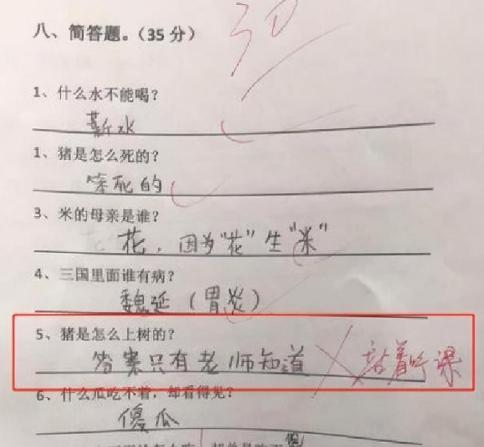 八、简答题。（35 分）
30
1、什么水不能喝？
薪水
1、猪是怎么死的？
笨死的
3、米的母亲是谁？
花，因为“花”生“米”
4、三国里面谁有病？
魏延（胃炎）
5、猪是怎么上树的？
答案只有老师知道 站着听课
6、什么瓜吃不着，却看得见？
傻瓜